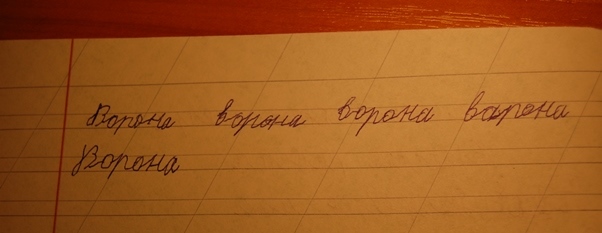 Ворона ворона ворона варона
Ворона